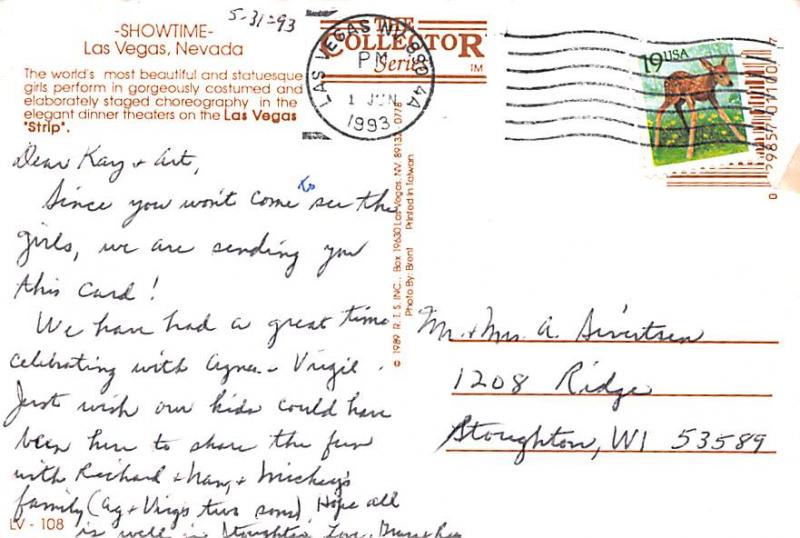 5-31-93
-SHOWTIME-
Las Vegas, Nevada
The world's most beautiful and statuesque
girls perform in gorgeously costumed and
elaborately staged choreography in the
elegant dinner theaters on the Las Vegas
"Strip".
Dear Kay + Art,
Since you won't come to see the
girls, we are sending you
this card!
We have had a great time
celebrating with Agnes + Virgil.
Just wish our kids could have
been here to share the fun
with Richard + Nancy + Mickey's
family (Ag + Virg's two sons). Hope all
is well in Stoughton. Love,
LV - 108
THE
COLLECTOR
Series
TM
LAS VEGAS NV 890 4A
PM
1 JUN
1993
© 1989 R.T.S. INC., Box 19630 Las Vegas, NV. 89132 0778
Photo By: Brent Printed in Taiwan
19 USA
0 29857 01100 7
Mr. + Mrs. A. Sivertsen
1208 Ridge
Stoughton, WI 53589